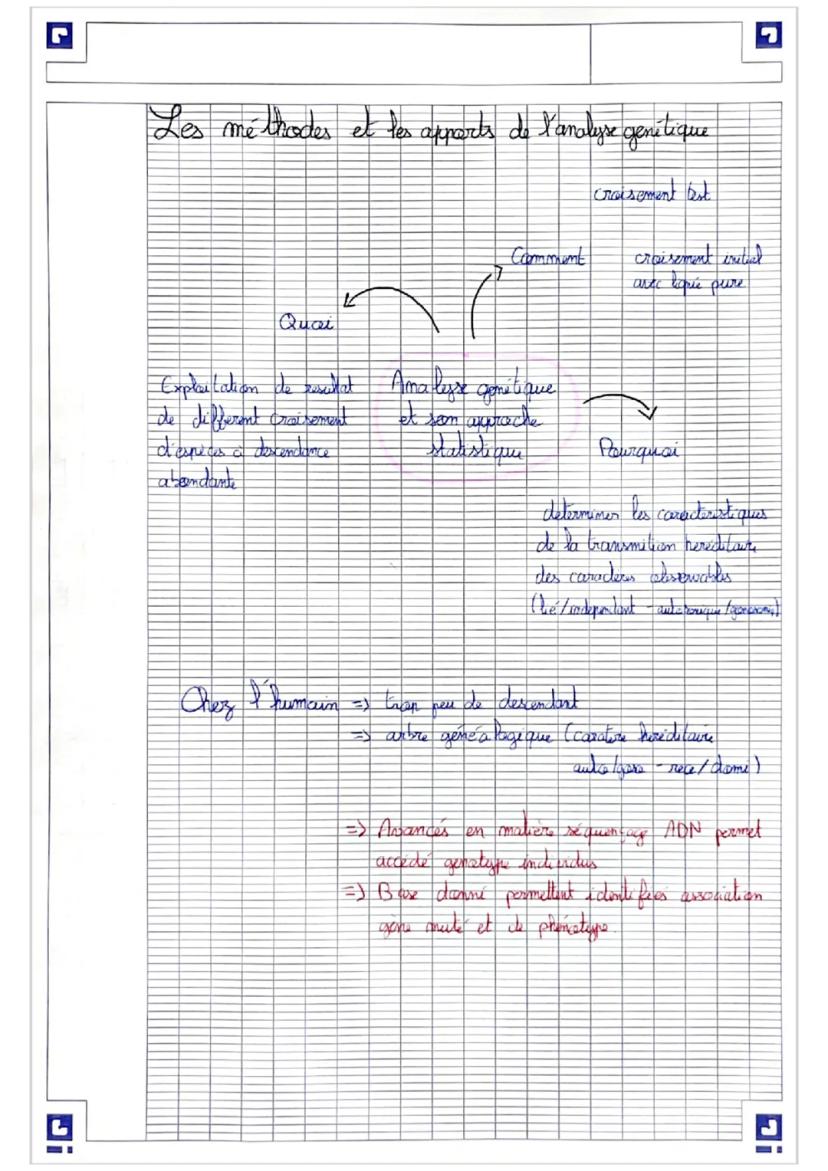 Les méthodes et les apports de l'analyse genétique
croisement test
Comment
croisement initial
avec lignée pure
Quoi
Exploitation de resultat
de différent croisement
d'espèces à descendance
abondante
Analyse génétique
et son approche
statistique
Pourquoi
déterminer les caracteristiques
de la transmition heréditaire
des caractères observables
(lié/independant -
Chez l'humain => trop peu de descendant
=> arbre généalogique (caractère heréditaire
auto/gono - rece/domi)
=> Avancés en matière séquençage ADN permet
accédé genotype individus
=> Base donné permettent identifiés association
gène muté et de phénotype